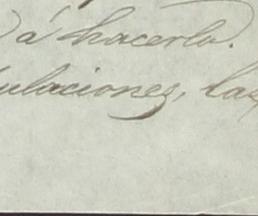 á hacerlo.
ulaciones, las